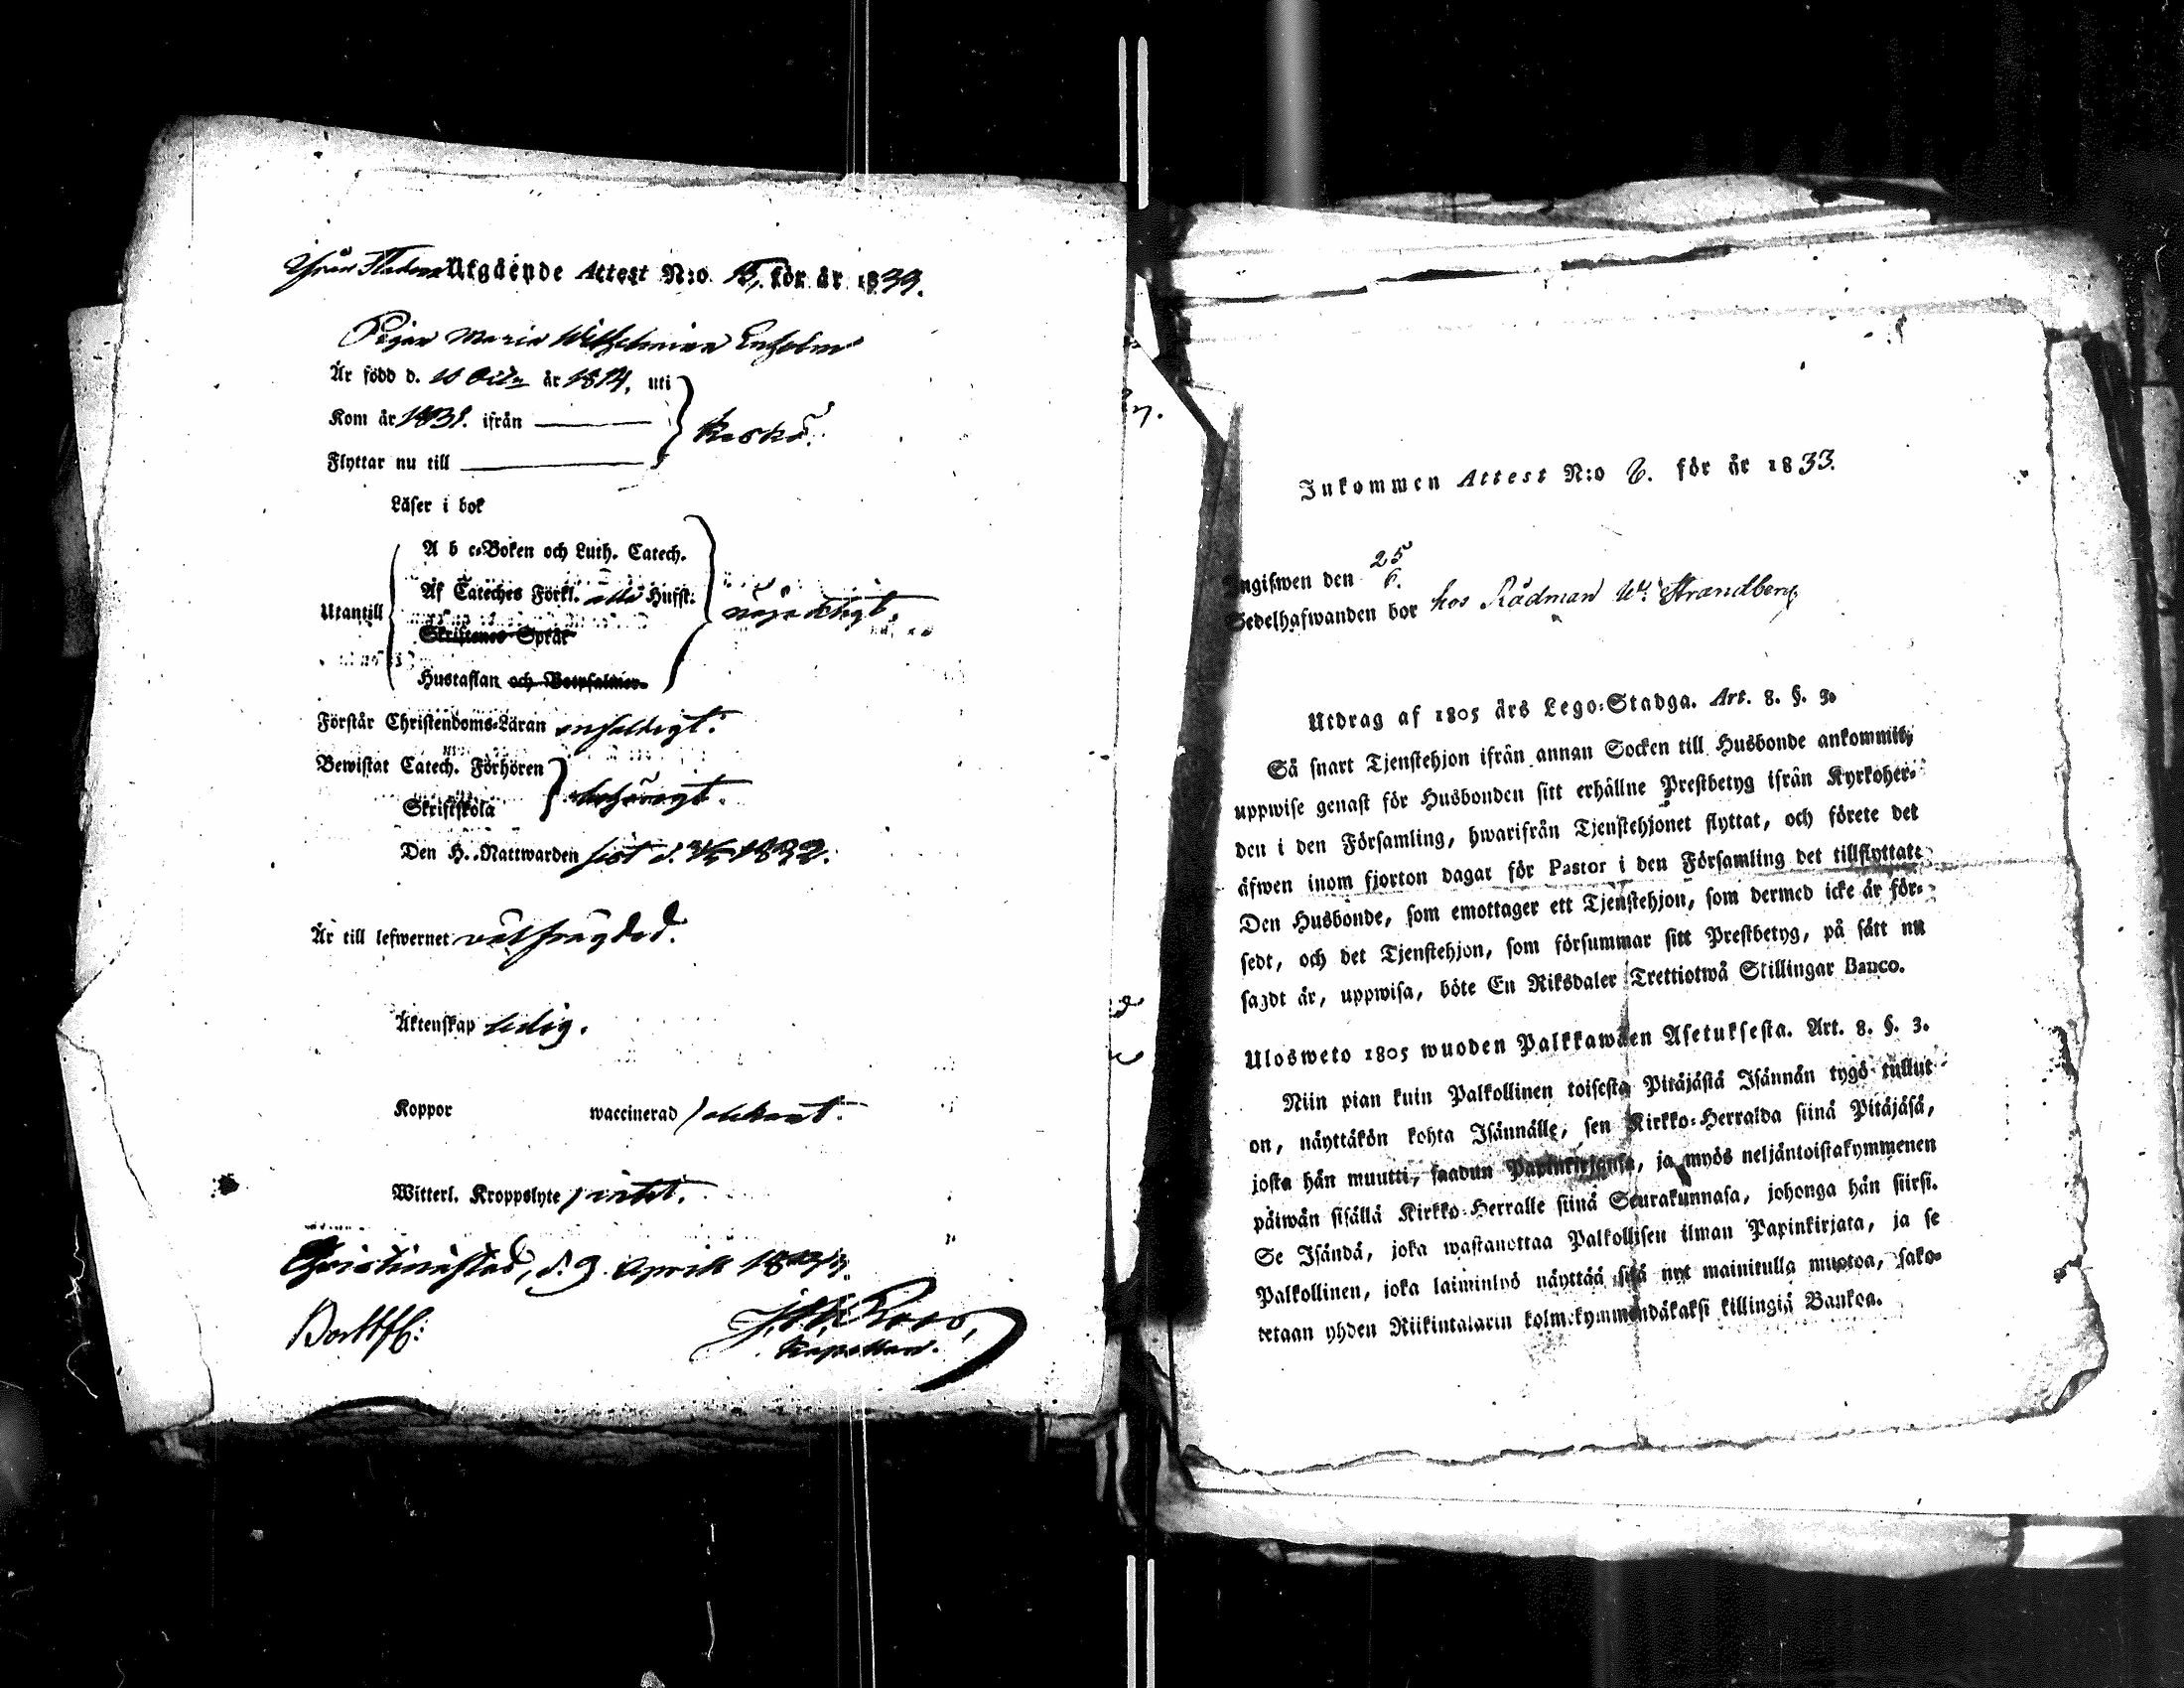 Ifrån Staden Utgående Attest N:o 15, för år 1833.
Pigan Maria Wilhelmina Enholm
Är född d. 10 år 1814, uti
Kom år 1831. ifrån
Kaskö.
Flyttar nu till
Läser i bok
A b c-Boken och Luth. Catech.
Utantill
Af Cateches Förkl. alla Husst:
nöjaktigt.
Skriftenes Språk
Hustaflan och Botpsalmer.
Förstår Christendoms-Läran enfaldigt.
Bewistat Catech. Förhören
Skriftskola
behörigt.
Den H. Nattwarden sist d. 1832.
Är till lefwernet välfrägdad.
Äktenskap ledig.
Koppor waccinerad obekant.
Witterl. Kroppslyte intet.
Christinestad, d. 9. Aprill 1833.
Roos,
Kapellan.
Inkommen Attest N:o 6. för år 1833.
Angifwen den 25/6.
Sedelhafwanden bor hos Rådman W. Strandberg
Utdrag af 1805 års Lego-Stadga. Art. 8. §. 3.
Så snart Tjenstehjon ifrån annan Socken till Husbonde ankommit,
uppwise genast för Husbonden sitt erhållne Prestbetyg ifrån Kyrkoher-
den i den Församling, hwarifrån Tjenstehjonet flyttat, och förete det
äfwen inom fjorton dagar för Pastor i den Församling det tillflyttat.
Den Husbonde, som emottager ett Tjenstehjon, som dermed icke är för-
sedt, och det Tjenstehjon, som försummar sitt Prestbetyg, på sätt nu
sagdt är, uppwisa, böte En Riksdaler Trettiotwå Skillingar Banco.
Ulosweto 1805 wuoden Palkkawäen Asetuksesta. Art. 8. §. 3.
Niin pian kuin Palkollinen toisesta Pitäjästä Isännän tygö tullut
on, näyttäkön kohta Isännälle, sen Kirkko-Herralda siinä Pitäjäsä,
josta hän muutti, saadun Papinkirjansa, ja myös neljäntoistakymmenen
päiwän sisällä Kirkko-Herralle siinä Seurakunnasa, johonga hän siirsi.
Se Isändä, joka wastanottaa Palkollisen ilman Papinkirjata, ja se
Palkollinen, joka laiminlyö näyttää sitä nyt mainitulla muotoa, sako-
tetaan yhden Riikintalarin kolmekymmendäkaksi killingiä Bankoa.